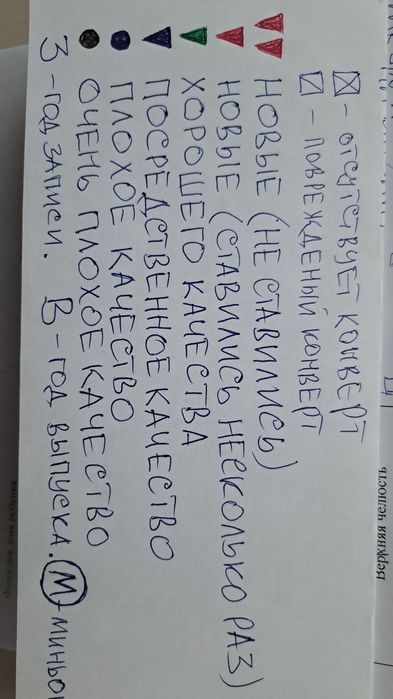 ☒ - отсутствует конверт
☑ - поврежденый конверт
НОВЫЕ (НЕ СТАВИЛИСЬ)
НОВЫЕ (СТАВИЛИСЬ НЕСКОЛЬКО РАЗ)
ХОРОШЕГО КАЧЕСТВА
ПОСРЕДСТВЕННОЕ КАЧЕСТВО
ПЛОХОЕ КАЧЕСТВО
ОЧЕНЬ ПЛОХОЕ КАЧЕСТВО
З-ГОД ЗАПИСИ. В-ГОД ВЫПУСКА. М-МИНЬОН
Верхняя челюсть